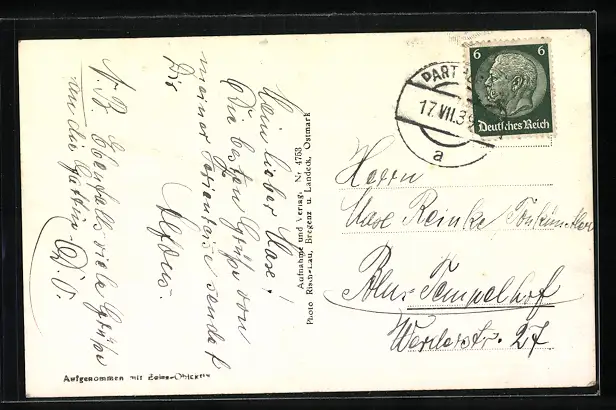 Mein lieber Maxe!
Die besten Grüße von
meiner Ferienreise sendet
Dir
Alfons.
N. B. Ebenfalls viele Grüße
an die Gattin
D. O.
Aufnahme und Verlag, Nr 4753
Photo Risch-Lau, Bregenz u. Landeck, Ostmark
6 6
Deutsches Reich
PART
17.VII.39
a
Herrn
Maxe Reinke, Tonkünstler
Bln.-Tempelhof
Werderstr. 27
Aufgenommen mit Zeiss-Objektiv